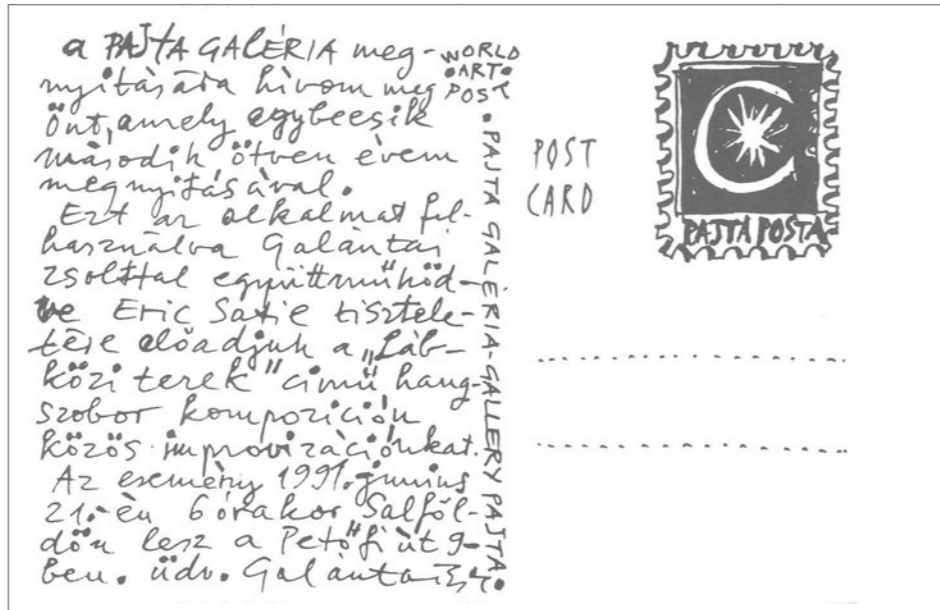 a PAJTA GALÉRIA meg-
nyitására hívom meg
Önt, amely egybeesik
második ötven évem
megnyitásával.
Ezt az alkalmat fel-
használva Galántai
Zsolttal együttműköd-
ve Eric Satie tisztele-
tére előadjuk a „Láb-
közi terek" című hang-
szobor kompozición
közös improvizációnkat.
Az esemény 1991. junius
21.-én 6 órakor Salföl-
dön lesz a Petőfi út 9-
ben. üdv. Galántai
WORLD
•ART•
POST
• PAJTA GALÉRIA-GALLERY PAJTA •
POST
CARD
PAJTA POSTA